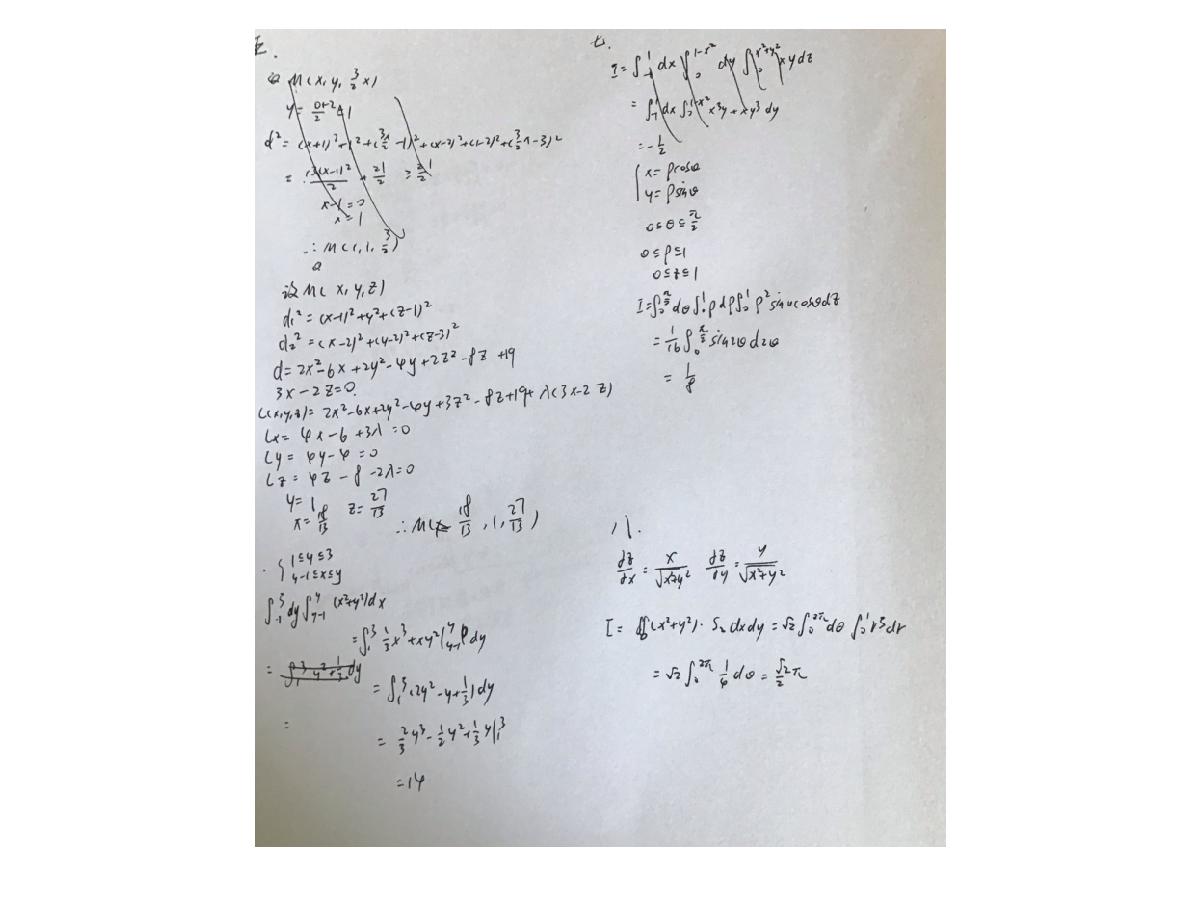 五.
设 M(x, y, 3/2 x)
y = (0+2)/2 = 1
d² = (x+1)² + 1² + (3x/2 - 1)² + (x-2)² + (1-2)² + (3/2 x - 3)²
= 13(x-1)²/2 + 21/2 ≥ 21/2
x-1=0
x=1
∴ M(1, 1, 3/2)
设 M(x, y, z)
d₁² = (x-1)² + y² + (z-1)²
d₂² = (x-2)² + (y-2)² + (z-3)²
d = 2x² - 6x + 2y² - 4y + 2z² - 8z + 19
3x - 2z = 0.
L(x,y,z) = 2x² - 6x + 2y² - 4y + 3z² - 8z + 19 + λ(3x - 2z)
Lx = 4x - 6 + 3λ = 0
Ly = 4y - 4 = 0
Lz = 4z - 8 - 2λ = 0
y = 1
x = 18/13 z = 27/13
∴ M(18/13, 1, 27/13)
{ 1≤y≤3
y-1≤x≤y
∫₋₁³ dy ∫_{y-1}^{y} (x²+y²) dx
= ∫₁³ 1/3 x³ + xy² |_{y-1}^{y} dy
= ∫₁³ (2y² - y + 1/3) dy
=
= 2/3 y³ - 1/2 y² + 1/3 y |₁³
= 14
七.
I = ∫₋₁¹ dx ∫₀^{1-x²} dy ∫₀^{x²+y²} xy dz
= ∫₋₁¹ dx ∫₀^{1-x²} x³y + xy³ dy
= -1/2
{ x = ρcosθ
y = ρsinθ
0≤θ≤π/2
0≤ρ≤1
0≤z≤1
I = ∫₀^{π/2} dθ ∫₀¹ ρ dρ ∫₀¹ ρ² sinθcosθ dz
= 1/16 ∫₀^{π/2} sin2θ d2θ
= 1/8
八.
dz/dx = x/√(x²+y²) dz/dy = y/√(x²+y²)
I = ∬(x²+y²)·√2 dxdy = √2 ∫₀^{2π} dθ ∫₀¹ r³ dr
= √2 ∫₀^{2π} 1/4 dθ = √2/2 π